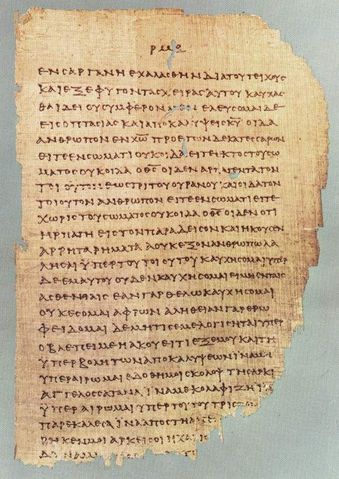 ΕΝϹΑΡΓΑΝΗΕΧΑΛΑϹΘΗΝΔΙΑΤΟΥΤΕΙΧΟΥϹ
ΚΑΙΕΞΕΦΥΓΟΝΤΑϹΧΕΙΡΑϹΑΥΤΟΥΚΑΥΧΑϹ
ΘΑΙΔΕΙΟΥϹΥΜΦΕΡΟΝΜΕΝΕΛΕΥϹΟΜΑΙΔΕ
ΕΙϹΟΠΤΑϹΙΑϹΚΑΙΑΠΟΚΑΛΥΨΕΙϹΚ̅Υ̅ΟΙΔΑ
ΑΝΘΡΩΠΟΝΕΝΧ̅Ρ̅Ω̅ΠΡΟΕΤΩΝΔΕΚΑΤΕϹϹΑΡΩΝ
ΕΙΤΕΕΝϹΩΜΑΤΙΟΥΚΟΙΔΑΕΙΤΕΕΚΤΟϹΤΟΥϹΩ
ΜΑΤΟϹΟΥΚΟΙΔΑΟΘ̅Ϲ̅ΟΙΔΕΝΑΡΠΑΓΕΝΤΑΤΟΝ
ΤΟΙΟΥΤΟΝΕΩϹΤΡΙΤΟΥΟΥΡΑΝΟΥΚΑΙΟΙΔΑΤΟΝ
ΤΟΙΟΥΤΟΝΑΝΘΡΩΠΟΝΕΙΤΕΕΝϹΩΜΑΤΙΕΙΤΕ
ΧΩΡΙϹΤΟΥϹΩΜΑΤΟϹΟΥΚΟΙΔΑΟΘ̅Ϲ̅ΟΙΔΕΝΟΤΙ
ΗΡΠΑΓΗΕΙϹΤΟΝΠΑΡΑΔΕΙϹΟΝΚΑΙΗΚΟΥϹΕΝ
ΑΡΡΗΤΑΡΗΜΑΤΑΑΟΥΚΕΞΟΝΑΝΘΡΩΠΩΛΑ
ΛΗϹΑΙΥΠΕΡΤΟΥΤΟΙΟΥΤΟΥΚΑΥΧΗϹΟΜΑΙΥΠΕΡ
ΔΕΕΜΑΥΤΟΥΟΥΔΕΝΚΑΥΧΗϹΟΜΑΙΕΙΜΗΕΝΤΑΙϹ
ΑϹΘΕΝΕΙΑΙϹΕΑΝΓΑΡΘΕΛΩΚΑΥΧΗϹΟΜΑΙ
ΟΥΚΕϹΟΜΑΙΑΦΡΩΝΑΛΗΘΕΙΑΝΓΑΡΕΡΩ
ΦΕΙΔΟΜΑΙΔΕΜΗΤΙϹΕΜΕΛΟΓΙϹΗΤΑΙΥΠΕΡ
ΟΒΛΕΠΕΙΜΕΗΑΚΟΥΕΙΤΙΕΞΕΜΟΥΚΑΙΤΗ
ΥΠΕΡΒΟΛΗΤΩΝΑΠΟΚΑΛΥΨΕΩΝΙΝΑΜΗ
ΥΠΕΡΑΙΡΩΜΑΙΕΔΟΘΗΜΟΙϹΚΟΛΟΨΤΗϹΑΡΚΙ
ΑΓΓΕΛΟϹϹΑΤΑΝΑΙΝΑΜΕΚΟΛΑΦΙΖΗΙΝΑ
ΥΠΕΡΑΙΡΩΜΑΙΥΠΕΡΤΟΥΤΟΥΤΡΙϹ
ΠΑΡΕΚΑΛΕϹΑΙΝΑΑΠΟϹΤΗ
ΡΗΚΕΝΜΟΙΑΡΚΕΙϹΟΙΗΧΑΡΙϹ